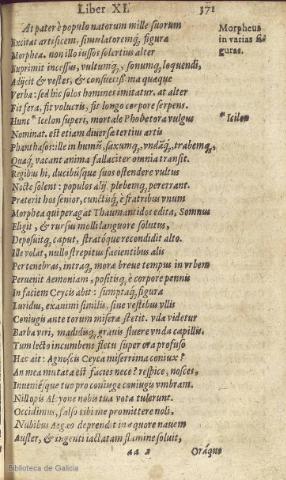 Liber XI. 371
At pater è populo natorum mille suorum
Excitat artificem, simulatoremq́; figuræ
Morphea. non illo iussos solertius alter
Exprimit incessus, vultumq́;, sonumq́; loquendi,
Adijcit & vestes, & consuetissima quæque
Verba: sed hic solos homines imitatur. at alter
Fit fera, fit volucris, fit longo corpore serpens.
Hunc * Icelon superi, mortale Phobetora vulgus
Nominat. est etiam diuersæ tertius artis
Phantasos: ille in humũ, saxumq́;, vndãq́;, trabemq́;,
Quæq́; vacant anima fallaciter omnia transit.
Regibus hi, ducibúsque suos ostendere vultus
Nocte solent: populos alij plebemq́; pererrant.
Præterit hos senior, cunctisq́; è fratribus vnum
Morphea qui peragat Thaumantidos edita, Somnus
Eligit, & rursus molli languore solutus,
Deposuitq́; caput, stratóque recondidit alto.
Ille volat, nullos strepitus facientibus alis
Per tenebras, intraq́; moræ breue tempus in vrbem
Peruenit Aemoniam, positisq́; è corpore pennis
In faciem Ceycis abit: sumptaq́; figura
Luridus, exanimi similis, sine vestibus vllis
Coniugis ante torum miseræ stetit. vda videtur
Barba viri, madidisq́; grauis fluere vnda capillis.
Tum lecto incumbens fletu super ora profuso
Hæc ait: Agnoscis Ceyca miserrima coniux?
An mea mutata est facies nece? respice, nosces,
Inueniésque tuo pro coniuge coniugis vmbram.
Nil opis Alcyone nobis tua vota tulerunt.
Occidimus, falso tibi me promittere noli.
Nubibus Aegæo deprendit in æquore nauem
Auster, & ingenti iactatam flamine soluit,
aa 2 Oráque
Morpheus
in varias fi-
guras.
* Icilon
Biblioteca de Galicia